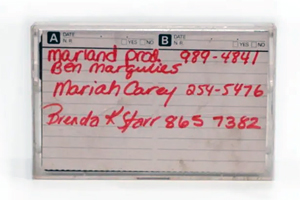 A DATE N.R. YES NO B DATE N.R. YES NO
Marland prod. 989-4841
Ben margulies
Mariah Carey 254-5476
Brenda K Starr 865 7382